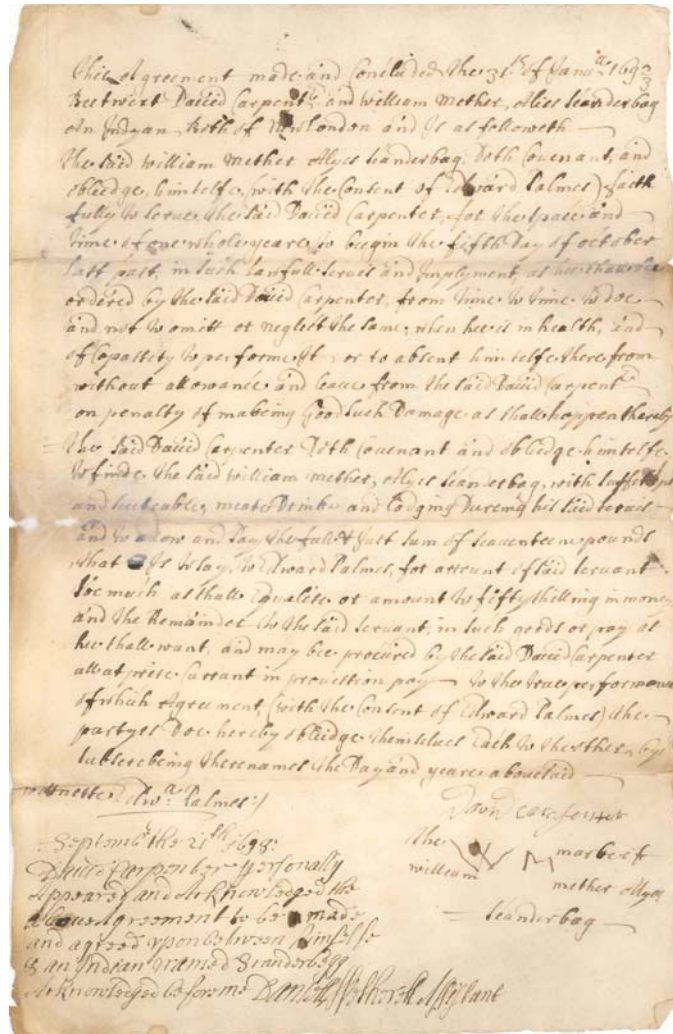 This Agreement made and Concluded the 31th of Janua 1692/3
Bettwixt Dauid Carpentr and william Mether, Alies scanderbag
An Indyan Both of Newlondon and Is as followeth
The said william mether Alyes scanderbag, Doth Covenant, and
obliedge, himselfe, (with the Consent of Edward Palmes) faith
fully to serue the said Dauid Carpenter, for the space and
time of one whole yeare, to begin the fifth Day of october
last past, in such lawfull seruis and Imployment, as hee shall bee
ordered by the said Dauid Carpenter, from time to time to doe
and not to omitt or neglect the same, when hee is in health, and
of Capassety to performe It, or to absent himselfe therefrom
without allowance and leaue from the said Dauid Carpentr
on penalty of makeing Good such Damage as shall happen thereby
The said Dauid Carpenter Doth Covenant and obliedge himselfe
to finde the said william mether, Alyes scanderbag, with
and suiteable, meate Drinke and Lodging Dureing his said seruis
and to alow and pay the full & Just sum of seauenteene pounds
that Is to say, to Edward Palmes, for account of said seruant
soe much as shall Equalise or amount to fifty shilling in money
and the Remainder to the said seruant, in such goods or pay as
hee shall want, and may bee procured by the said Dauid Carpenter
all at prise Currant in prouission pay to the true performance
of which Agreement, (with the Consent of Edward Palmes) the
partyes Doe hereby obliedge themselues Each to the other, by
subscrebeing there names the Day and yeare abouesaid
wittnesse Edwa Palmes:/
David carpenter
The W M marke of
william mether Alyes
scanderbag
Septembr the 21th 1698:
David Carpenter personally
Appeared and Acknowledged the
aboue Agreement to be made
and agreed upon between himselfe
& an Indian named Scanderbegg
Acknowledged before me Daniell Wetherell Assistant